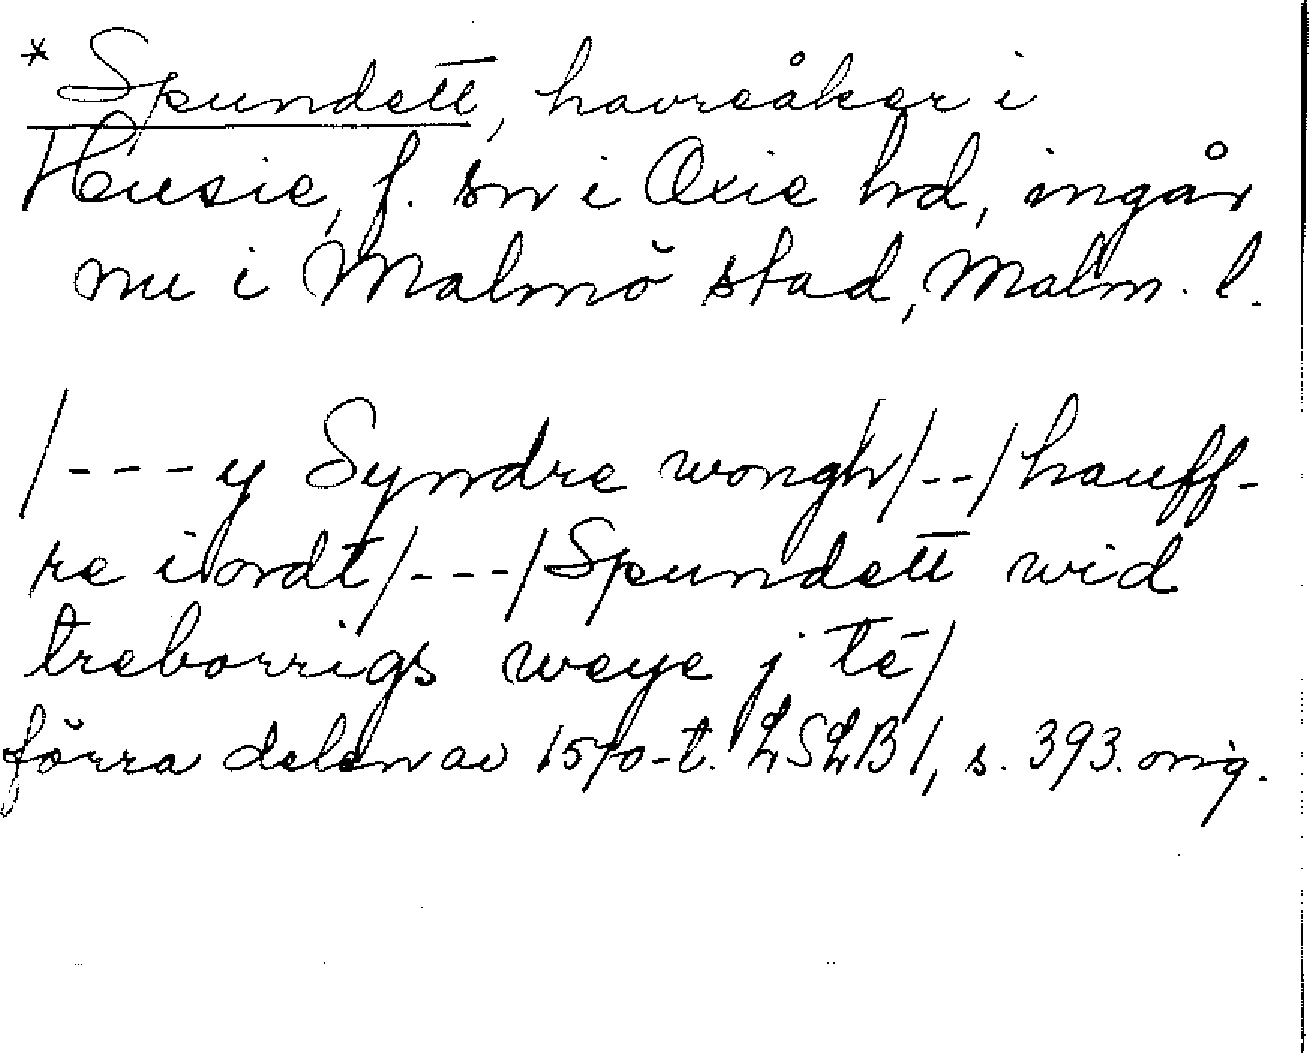 * Spundett, havreåker i
Husie, f. sn i Oxie hd, ingår
nu i Malmö stad, Malm. l.
/---y Syndre wongh/--/hauff-
re iordt/---/Spundett wid
treborrigs weye j té/
förra delen av 1570-t. LSLB 1, s. 393. orig.